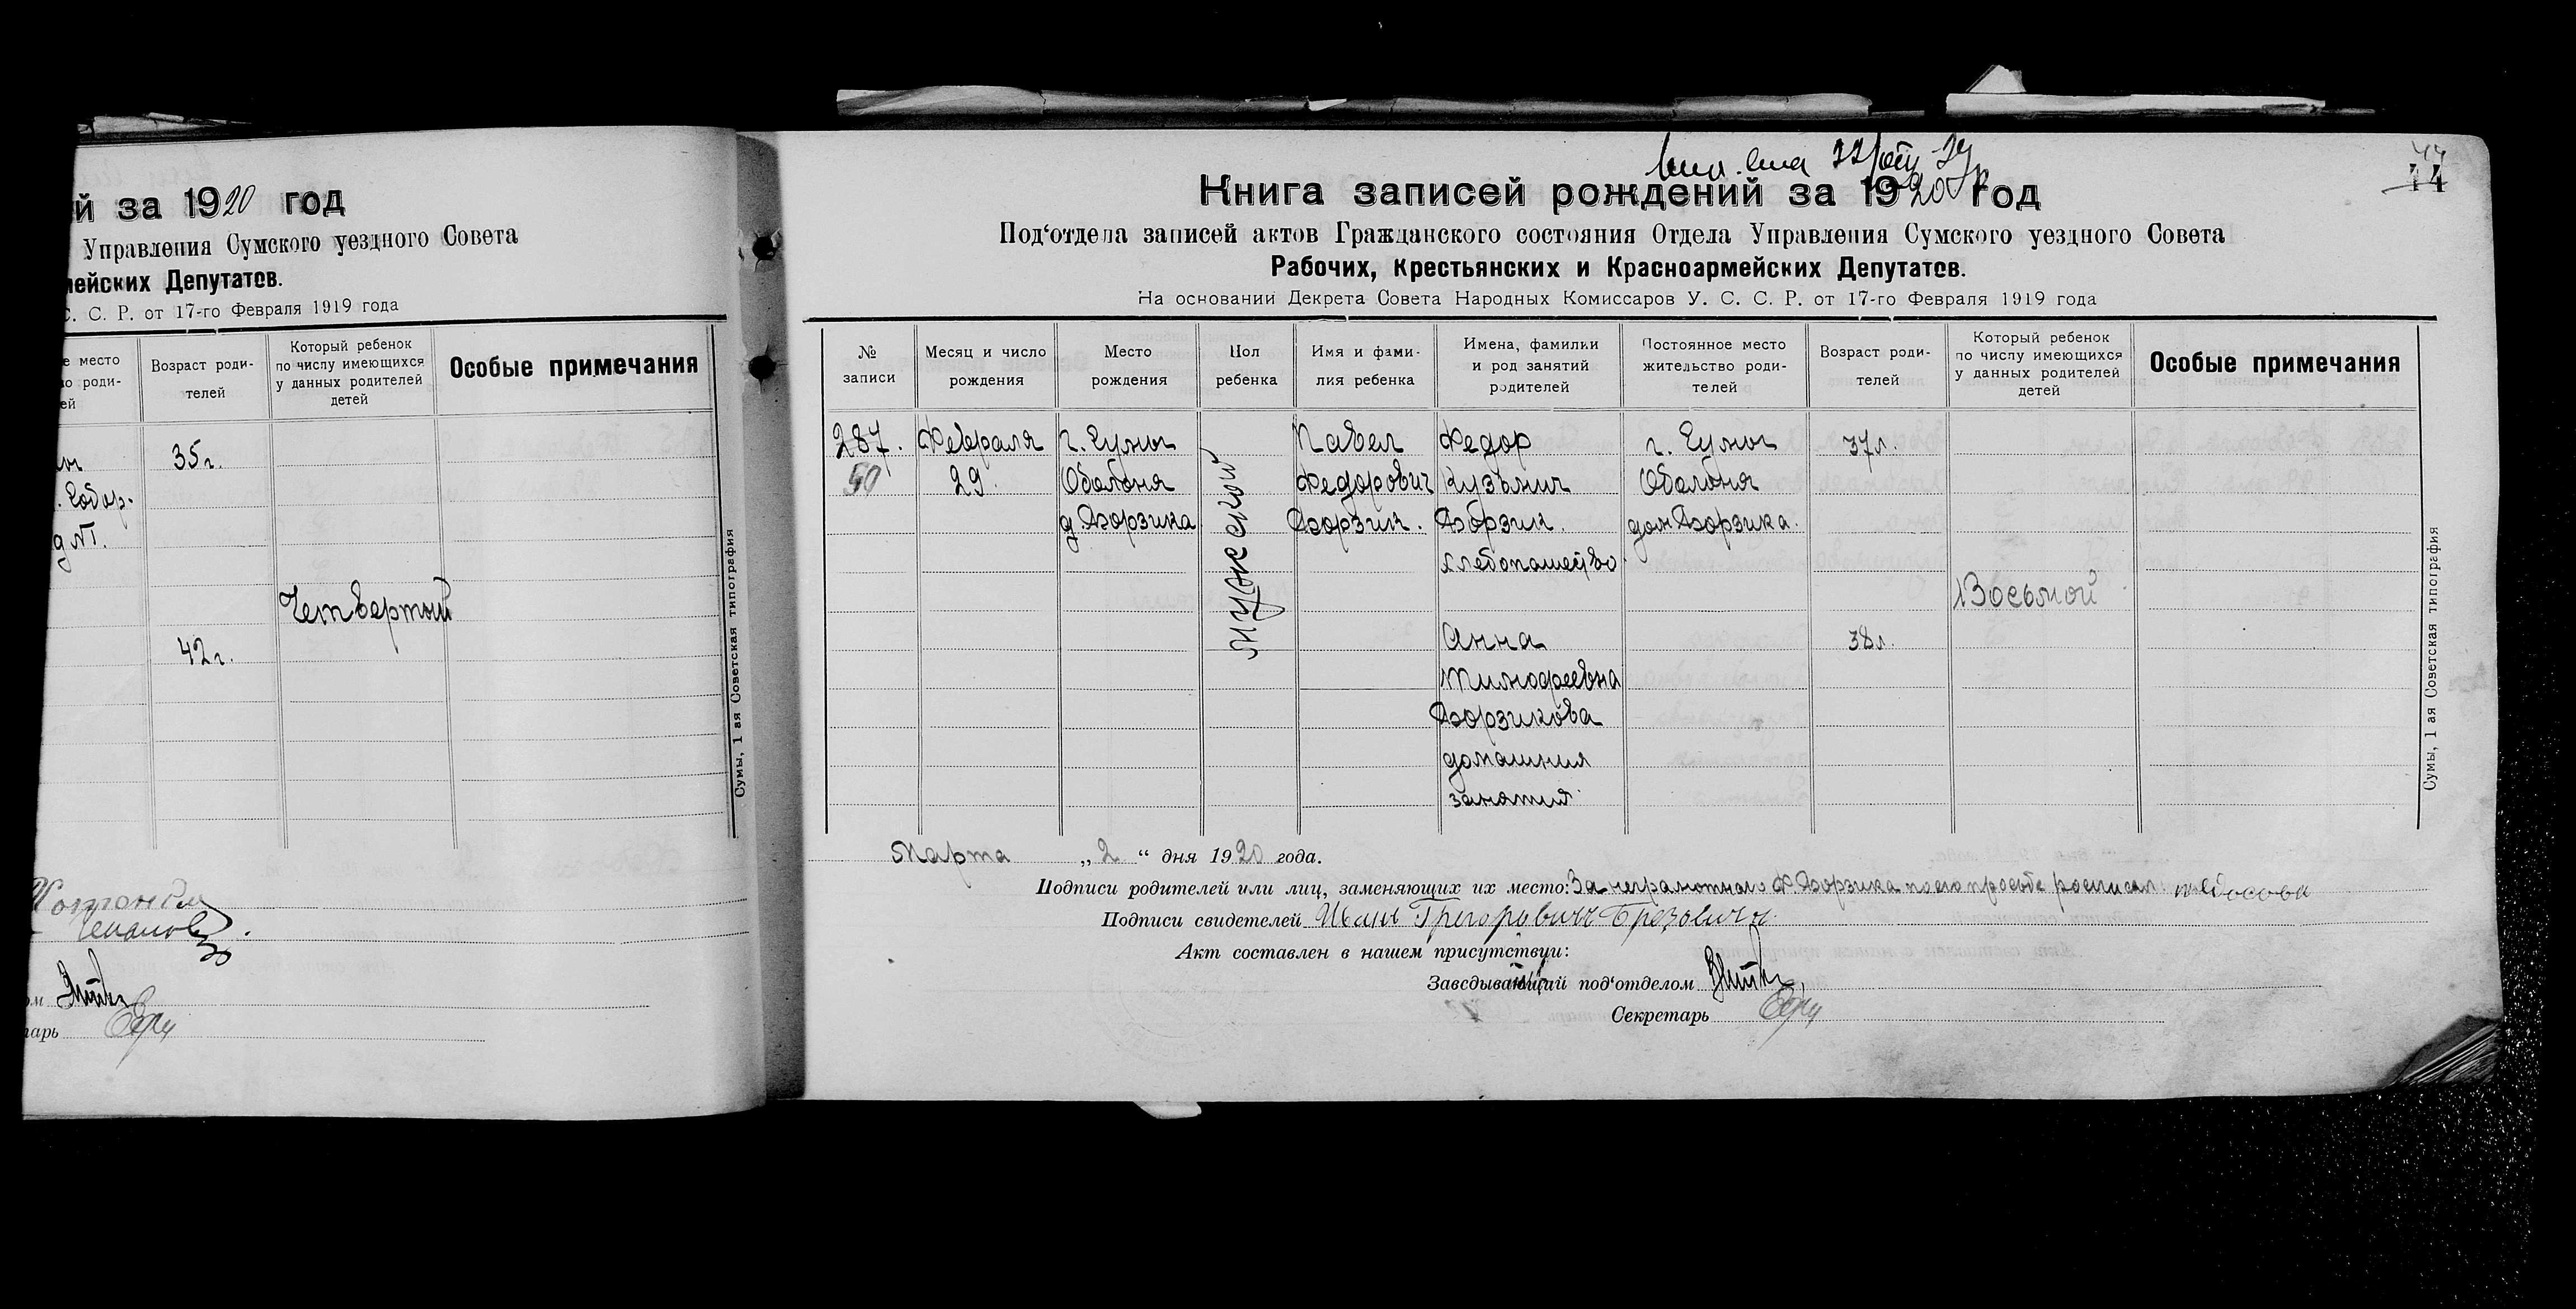 й за 1920 год
Управления Сумского уездного Совета
мейских Депутатов.
С. С. Р. от 17-го Февраля 1919 года
е место
о роди-
ей
Возраст роди-
телей
Который ребенок
по числу имеющихся
у данных родителей
детей
Особые примечания
35 г.
Четвертый
42 г.
Сумы, 1 ая Советская типография
тарь
44
14
Книга записей рождений за 1920 год
Под‘отдела записей актов Гражданского состояния Отдела Управления Сумского уездного Совета
Рабочих, Крестьянских и Красноармейских Депутатов.
На основании Декрета Совета Народных Комиссаров У. С. С. Р. от 17-го Февраля 1919 года
№
записи
Месяц и число
рождения
Место
рождения
Пол
ребенка
Имя и фами-
лия ребенка
Имена, фамилии
и род занятий
родителей
Постоянное место
жительство роди-
телей
Возраст роди-
телей
Который ребенок
по числу имеющихся
у данных родителей
детей
Особые примечания
287.
50
Февраля
29.
г. Сумы
Оболоня
д. Борзика
мужской
Павел
Федорович
Борзик.
Федор
Кузьмич
Борзик.
хлебопашество
Анна
Тимофеевна
Борзикова
домашния
занятия
г. Сумы
Оболоня
дом Борзика.
37 л.
38 л.
Восьмой
Сумы, 1 ая Советская типография
Марта „2“ дня 1920 года.
Подписи родителей или лиц, заменяющих их место: За неграмотного Ф. Борзика по его просьбе росписал
Подписи свидетелей Иван Григорович
Акт составлен в нашем присутствуи:
Заведывающий под‘отделом
Секретарь